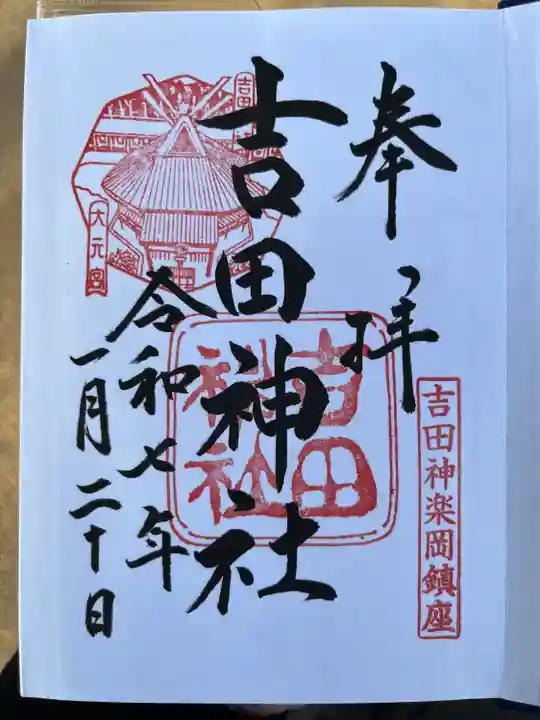 奉拝
吉田神楽岡鎮座
吉田神社
吉田
神社
令和七年
一月二十日
大元宮